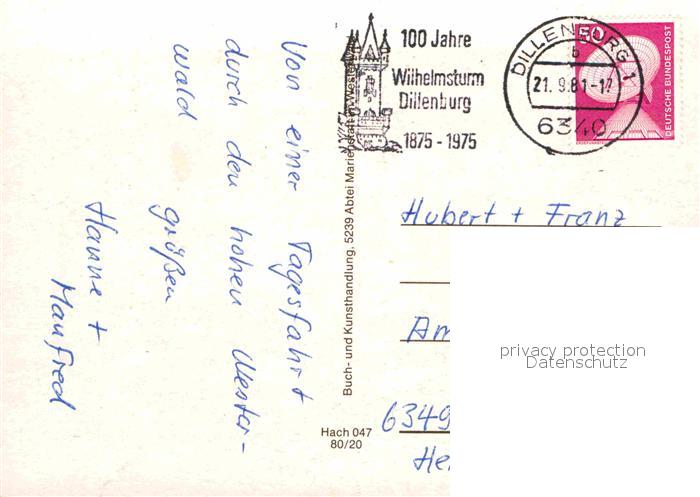 Von einer Tagesfahrt
durch den hohen Wester-
wald
grüßen
Hanne +
Manfred
Buch- und Kunsthandlung, 5239 Abtei Marienstatt
Hach 047
80/20
100 Jahre
Wilhelmsturm
Dillenburg
1875 - 1975
DILLENBURG 1
b
21. 9.81-17
6340
50
DEUTSCHE BUNDESPOST
Hubert + Franz
Am
6349
He
privacy protection
Datenschutz